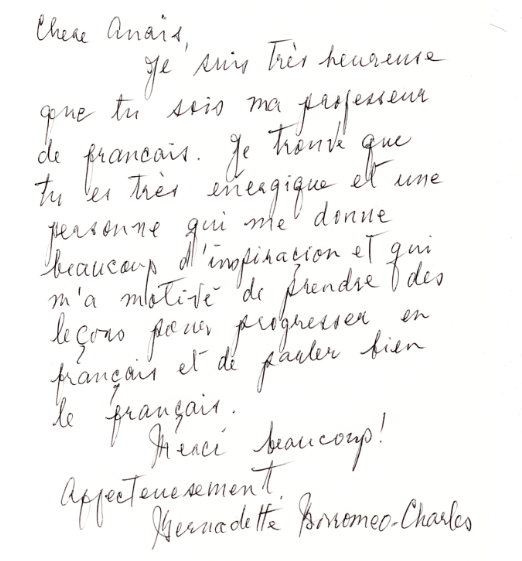 Chere Anaïs,
Je suis très heureuse
que tu sois ma professeur
de francais. Je trouve que
tu es très énergique et une
personne qui me donne
beaucoup d'inspiracion et qui
m'a motivé de prendre des
leçons pour progresser en
français et de parler bien
le français.
Merci beaucoup!
Affecteuesement,
Bernadette Borromeo-Charles